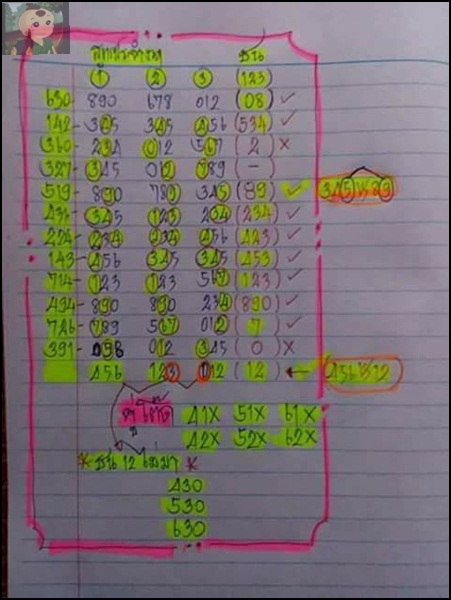 สูตรประจำงวด ชน
1 2 3 (123)
630- 890 678 012 (08) ✓
142- 345 345 456 (534) ✓
360- 234 012 567 (2) ×
327- 345 012 789 (-)
519- 890 789 345 (89) ✓ 345 ชน 89
436- 345 123 234 (234) ✓
224- 234 234 456 (423) ✓
143- 456 345 345 (453) ✓
714- 123 123 567 (123) ✓
434- 890 890 234 (890) ✓
726- 789 567 012 (7) ✓
391- 098 012 345 (0) ×
456 123 012 (12) ← 456 ชน 12
41X 51X 61X
42X 52X 62X
* ชน 12 *
430
530
630